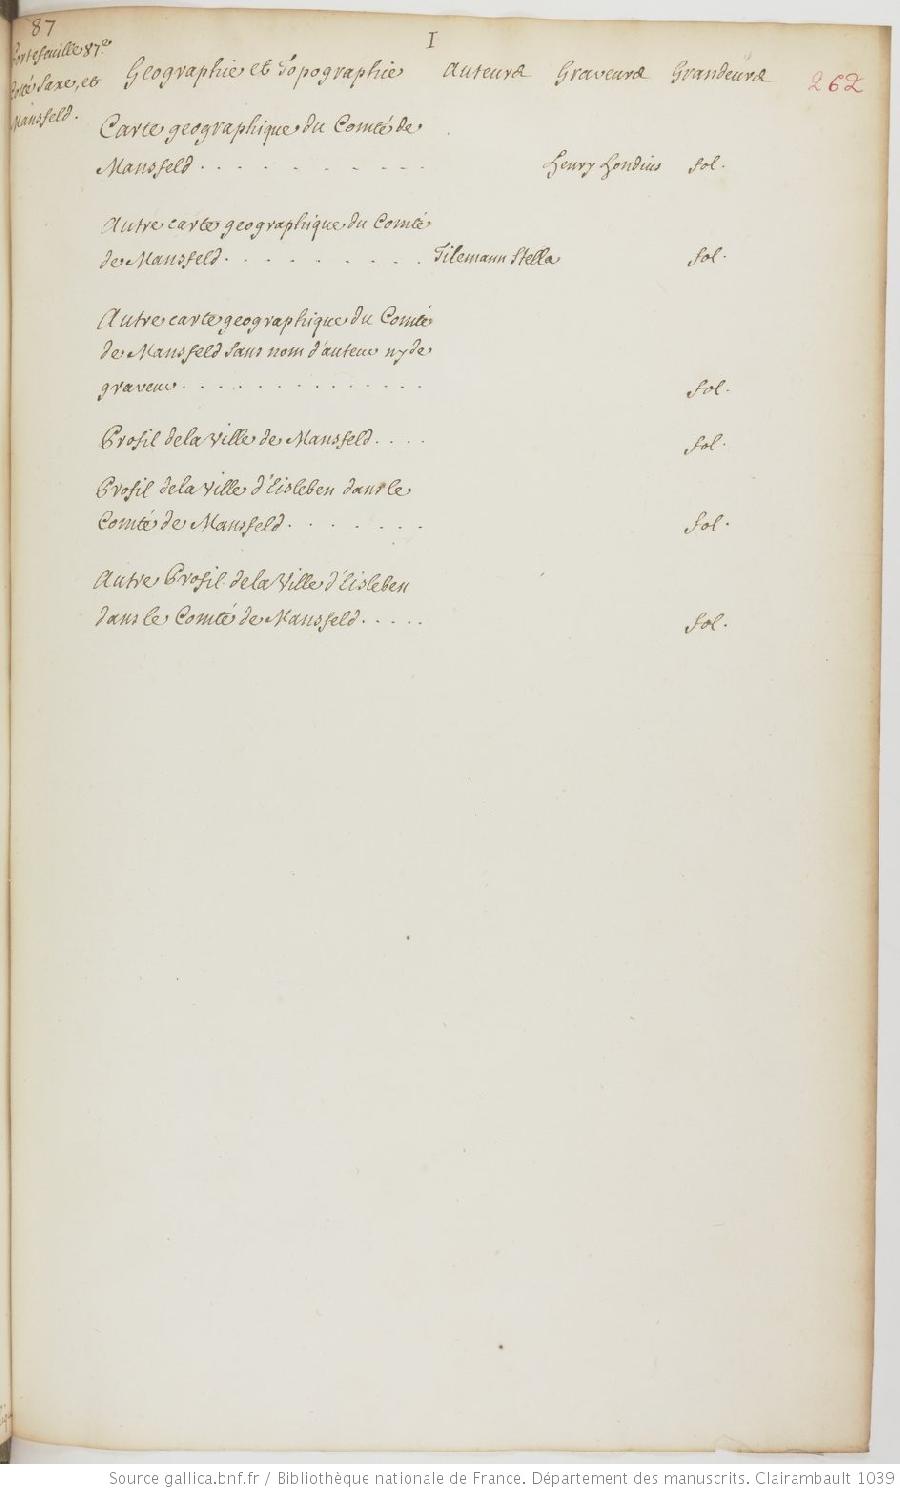 87
I
262
Portefeuille 87e
Cotté Saxe, et
Mansfeld.
Geographie et Topographie Auteurs Graveurs Grandeurs
Carte geographique du Comté de
Mansfeld . . . . . . . . . . . Henry Hondius fol.
Autre carte geographique du Comté
de Mansfeld . . . . . . . . . Tilemann Stella fol.
Autre carte geographique du Comté
de Mansfeld sans nom d'auteur ny de
graveur . . . . . . . . . . . . . fol.
Profil de la Ville de Mansfeld . . . . fol.
Profil de la Ville d'Eisleben dans le
Comté de Mansfeld . . . . . . . fol.
Autre Profil de la Ville d'Eisleben
dans le Comté de Mansfeld . . . . . fol.
Source gallica.bnf.fr / Bibliothèque nationale de France. Département des manuscrits. Clairambault 1039